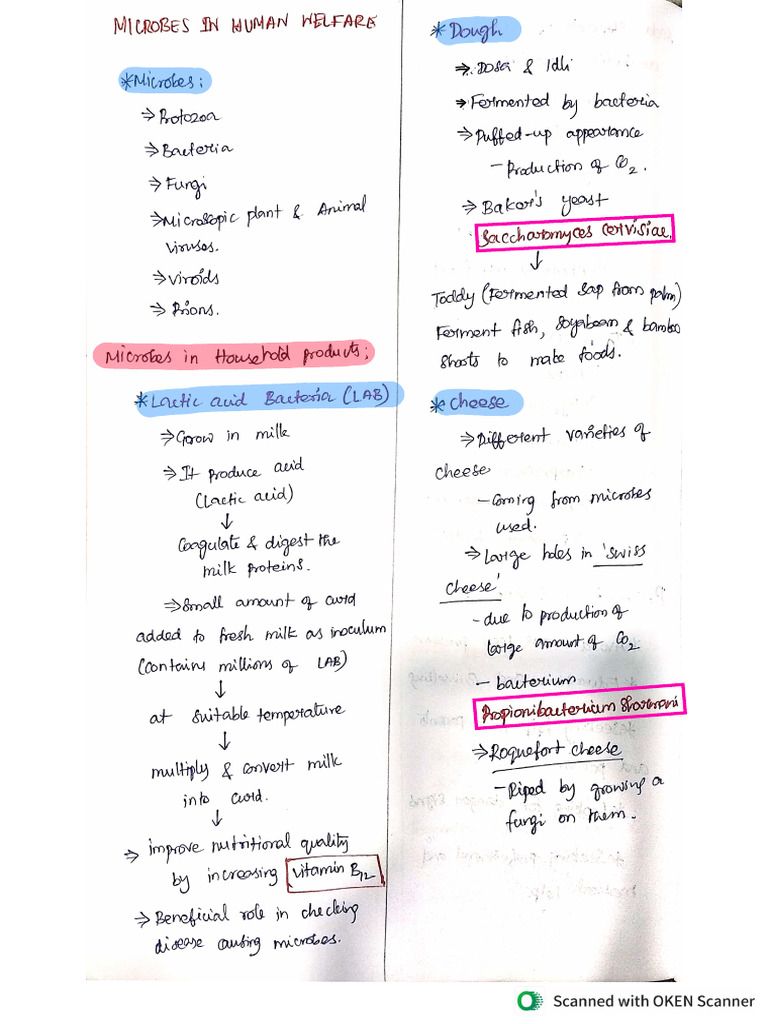 MICROBES IN HUMAN WELFARE
*Microbes:
⇒Protozoa
⇒Bacteria
⇒Fungi
⇒Microscopic plant & Animal
viruses.
⇒viroids
⇒Prions.
Microbes in Household products:
*Lactic acid Bacteria (LAB)
⇒Grow in milk
⇒It produce acid
(Lactic acid)
↓
Coagulate & digest the
milk proteins.
⇒Small amount of curd
added to fresh milk as inoculum
(contains millions of LAB)
↓
at suitable temperature
↓
multiply & convert milk
into curd.
↓
⇒ improve nutritional quality
by increasing Vitamin B12
⇒ Beneficial role in checking
disease causing microbes.
*Dough
⇒ Dosa & Idli
⇒Fermented by bacteria
⇒Puffed-up appearance
- Production of CO2.
⇒ Baker's yeast
Saccharomyces cervisiae.
↓
Toddy (Fermented sap from palm)
Ferment fish, soyabean & bamboo
shoots to make foods.
*Cheese
⇒Different varieties of
cheese
- Coming from microbes
used.
⇒Large holes in 'swiss
cheese'
- due to production of
large amount of CO2
- bacterium
Propionibacterium sharmani
⇒Roquefort cheese
- Riped by growing a
fungi on them.
Scanned with OKEN Scanner